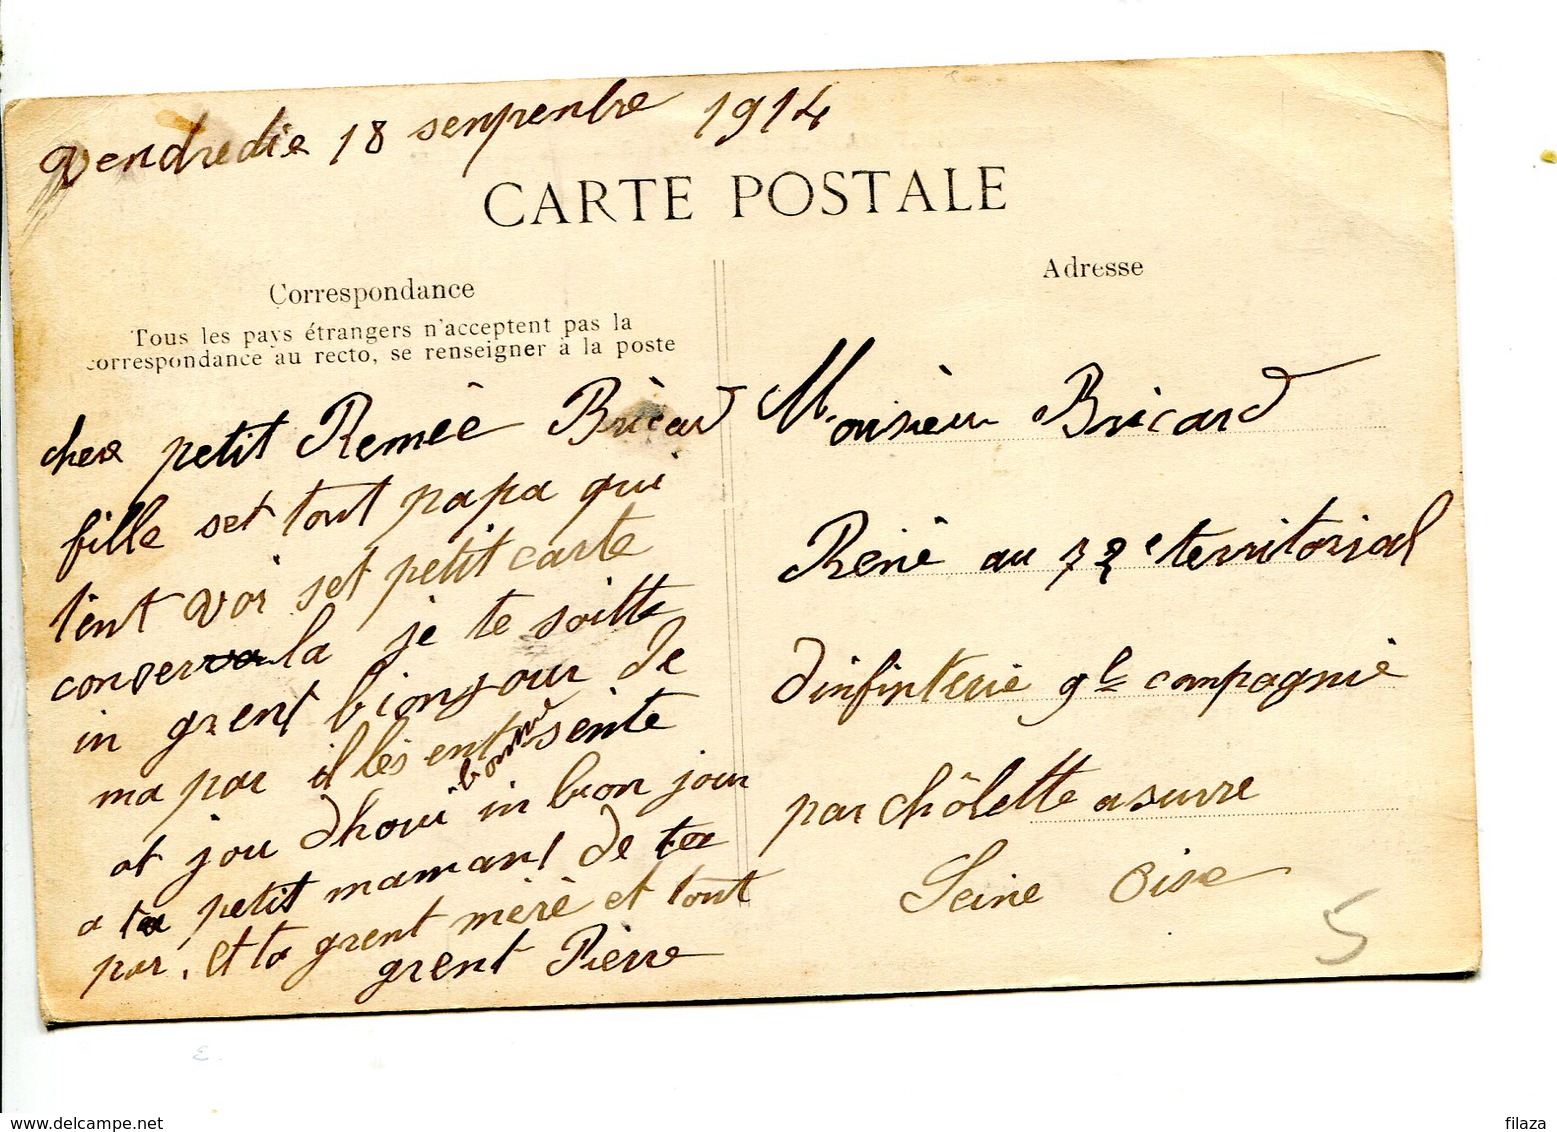 vendredie 18 senpenbre 1914
CARTE POSTALE
Correspondance
Tous les pays étrangers n'acceptent pas la
correspondance au recto, se renseigner à la poste
chere petit Remèè Bricard
fille set tout papa qui
tent voi set petit carte
conserva la je te soitte
in grent bionjour de
ma par il lès ent sente
bonne
ot jou dhoui in bon jour
a ta petit mamant de ta
par. et ta grent mère et tout
grent Pierre
Adresse
Monsieur Bricard
Réné au 72e territorial
dinfinterie 9e compagnie
par chôlette asurre
Seine Oise
5
www.delcampe.net
filaza